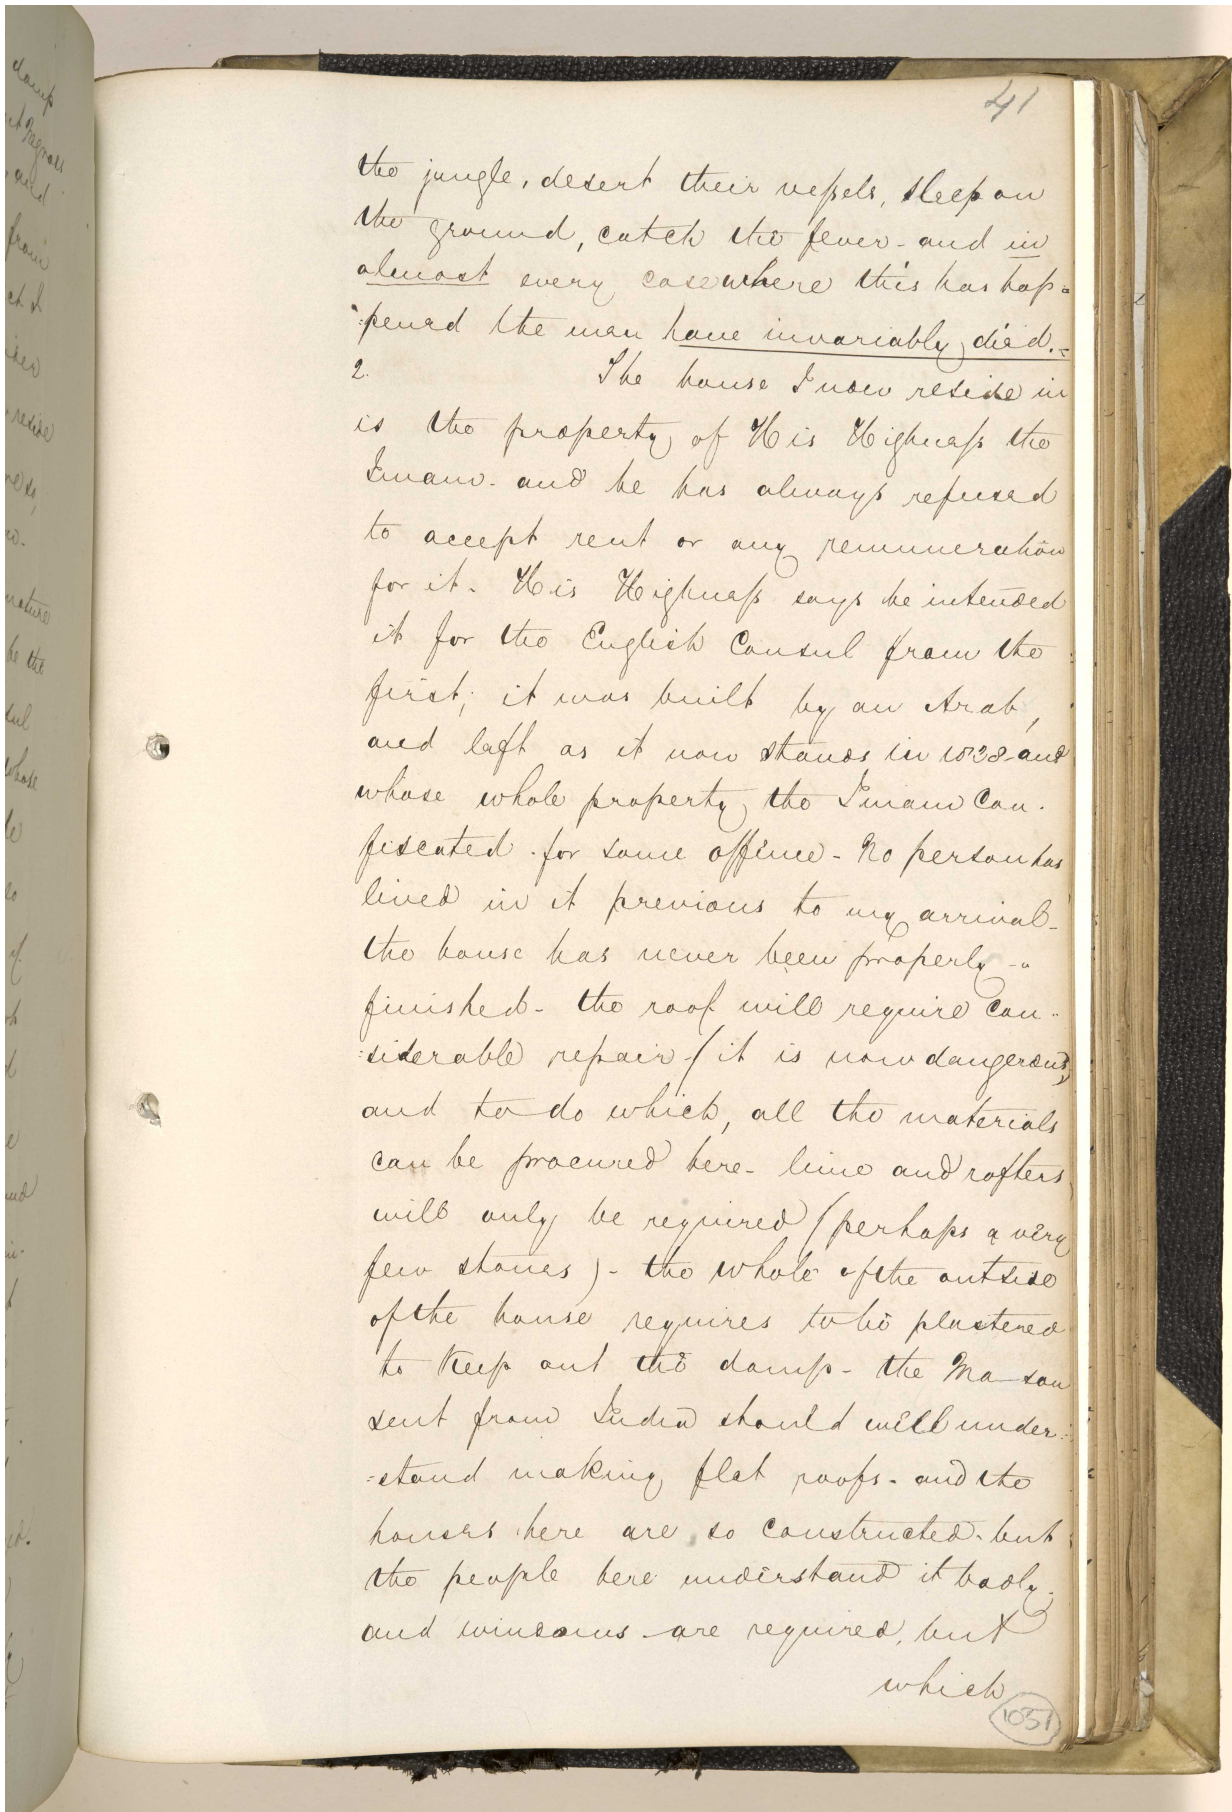 41
the jungle, desert their vessels, sleep on
the ground, catch the fever - and in
almost every case where this has hap=
=pened the men have invariably died.=
2. The house I now reside in
is the property of His Highness the
Imaum - and he has always refused
to accept rent or any remuneration
for it. His Highness says he intended
it for the English Consul from the
first; it was built by an Arab,
and left as it now stands in 1838 - and
whose whole property the Imaum Con-
fiscated for some offence - No person has
lived in it previous to my arrival -
the house has never been properly -
finished - the roof will require Con-
=siderable repair - (it is now dangerous)
and to do which, all the materials
can be procured here - lime and rafters
will only be required (perhaps a very
few stones) - the whole of the outside
of the house requires to be plastered
to Keep out the damp - the Mason
sent from India should well under=
=stand making flat roofs - and the
houses here are so constructed - but
the people here understand it badly,
and windows are required, but
which
1051